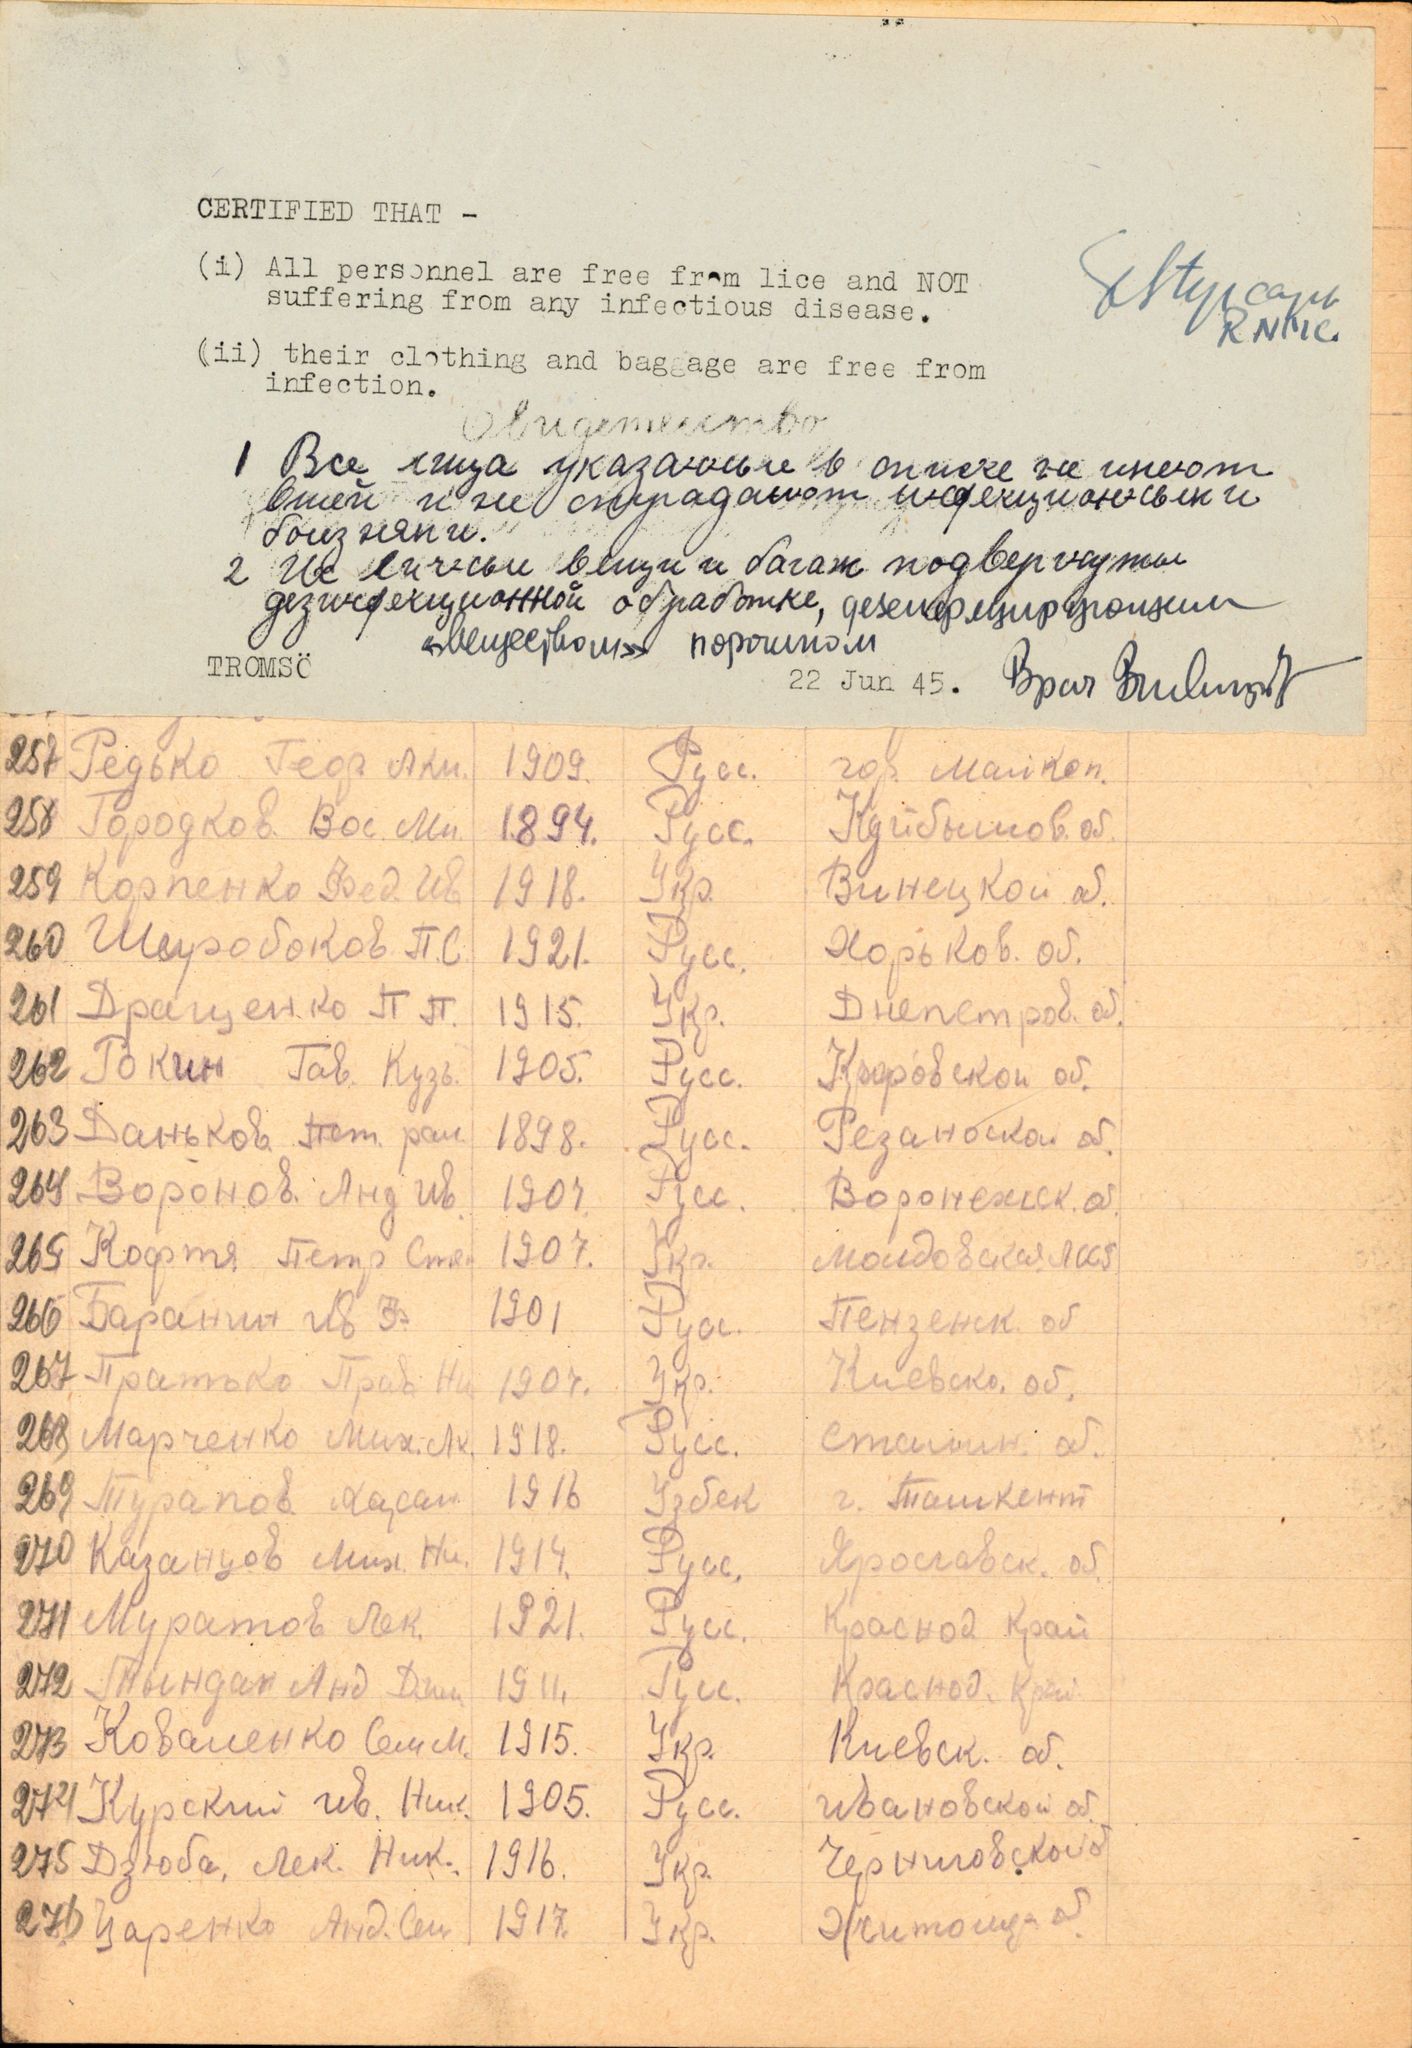 CERTIFIED THAT -
(i) All personnel are free from lice and NOT
suffering from any infectious disease.
R N M C.
(ii) their clothing and baggage are free from
infection.
Свидетельство
1 Все лица указанные в списке не имеют
вшей и не страдают инфекционными
болезнями.
2 Их личные вещи и багаж подвергнуты
дезинфекционной обработке, дезинфицирующим
"веществом" порошком
TROMSÖ 22 Jun 45. Врач
257 Редько Геор. Аки. 1909. Русс. гор. Майкоп.
258 Городков. Вас. Ми. 1894. Русс. Куйбышов. об.
259 Корпенко Фед. Ив 1918. Укр. Винецкой об.
260 Шыробоков П.С. 1921. Русс. Харьков. об.
261 Дращенко П П. 1915. Укр. Днепетров. об.
262 Гокин Гав. Кузь. 1905. Русс. Кировской об.
263 Даньков. Пет. 1898. Русс. Резанской об.
264 Воронов. Анд Ив. 1907. Русс. Воронежск. об.
265 Кофтя Петр Степ. 1907. Укр. Молдовская АССР
266 Баранин Ив Ф. 1901 Русс. Пензенск. об
267 Пратько Прав. Ни 1907. Укр. Киевско. об.
268 Марченко Мих. Ак. 1918. Русс. Сталин. об.
269 Турапов. Хасан. 1916 Узбек г. Ташкент
270 Казанцов Мих. Ни. 1914. Русс. Ярославск. об.
271 Муратов Лек. 1921. Русс. Краснод Край
272 Тындак Анд 1911. Русс. Краснод. Край.
273 Коваленко Сем М. 1915. Укр. Киевск. об.
274 Курский ив. Ник. 1905. Русс. ивановской об.
275 Дзюба, Лек. Ник. 1916. Укр. Черниговской об
276 Царенко Анд. Сем 1917. Укр. Житомир об.